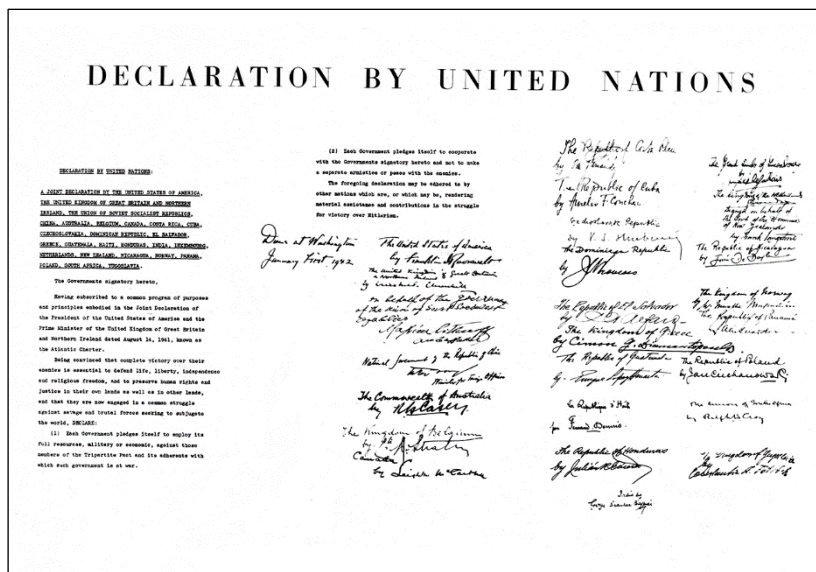 DECLARATION BY UNITED NATIONS
DECLARATION BY UNITED NATIONS:
A JOINT DECLARATION BY THE UNITED STATES OF AMERICA,
THE UNITED KINGDOM OF GREAT BRITAIN AND NORTHERN
IRELAND, THE UNION OF SOVIET SOCIALIST REPUBLICS,
CHINA, AUSTRALIA, BELGIUM, CANADA, COSTA RICA, CUBA,
CZECHOSLOVAKIA, DOMINICAN REPUBLIC, EL SALVADOR,
GREECE, GUATEMALA, HAITI, HONDURAS, INDIA, LUXEMBOURG,
NETHERLANDS, NEW ZEALAND, NICARAGUA, NORWAY, PANAMA,
POLAND, SOUTH AFRICA, YUGOSLAVIA.
The Governments signatory hereto,
Having subscribed to a common program of purposes
and principles embodied in the Joint Declaration of
the President of the United States of America and the
Prime Minister of the United Kingdom of Great Britain
and Northern Ireland dated August 14, 1941, known as
the Atlantic Charter.
Being convinced that complete victory over their
enemies is essential to defend life, liberty, independence
and religious freedom, and to preserve human rights and
justice in their own lands as well as in other lands,
and that they are now engaged in a common struggle
against savage and brutal forces seeking to subjugate
the world, DECLARE:
(1) Each Government pledges itself to employ its
full resources, military or economic, against those
members of the Tripartite Pact and its adherents with
which such government is at war.
(2) Each Government pledges itself to cooperate
with the Governments signatory hereto and not to make
a separate armistice or peace with the enemies.
The foregoing declaration may be adhered to by
other nations which are, or which may be, rendering
material assistance and contributions in the struggle
for victory over Hitlerism.
Done at Washington
January First, 1942
The United States of America
by Franklin D Roosevelt
The United Kingdom of Great Britain
& Northern Ireland
by Winston Churchill
on behalf of the Government
of the Union of Soviet Socialist
Republics
Maxim Litvinoff
Ambassador
National Government of the Republic of China
Minister for Foreign Affairs
The Commonwealth of Australia
by R G Casey
The Kingdom of Belgium
by
Canada
by Leighton McCarthy
The Republic of Costa Rica
by
The Republic of Cuba
by Aurelio F. Concheso
Czechoslovak Republic
by V. S. Hurban
The Dominican Republic
by
The Republic of El Salvador
by
The Kingdom of Greece
by Cimon G. Diamantopoulos
The Republic of Guatemala
by
La République d'Haiti
par Fernand Dennis
The Republic of Honduras
by Julián R Cáceres
India by
Girja Shankar Bajpai
The Grand Duchy of Luxembourg
by
The Kingdom of the Netherlands
Signed on behalf of
the Govt of the Dominion
of New Zealand
by Frank Langstone
The Republic of Nicaragua
by
The Kingdom of Norway
by
The Republic of Panamá
by
The Republic of Poland
by Jan Ciechanowski
The Union of South Africa
by Ralph W Close
The Kingdom of Yugoslavia
by
Constantin A. Fotitch